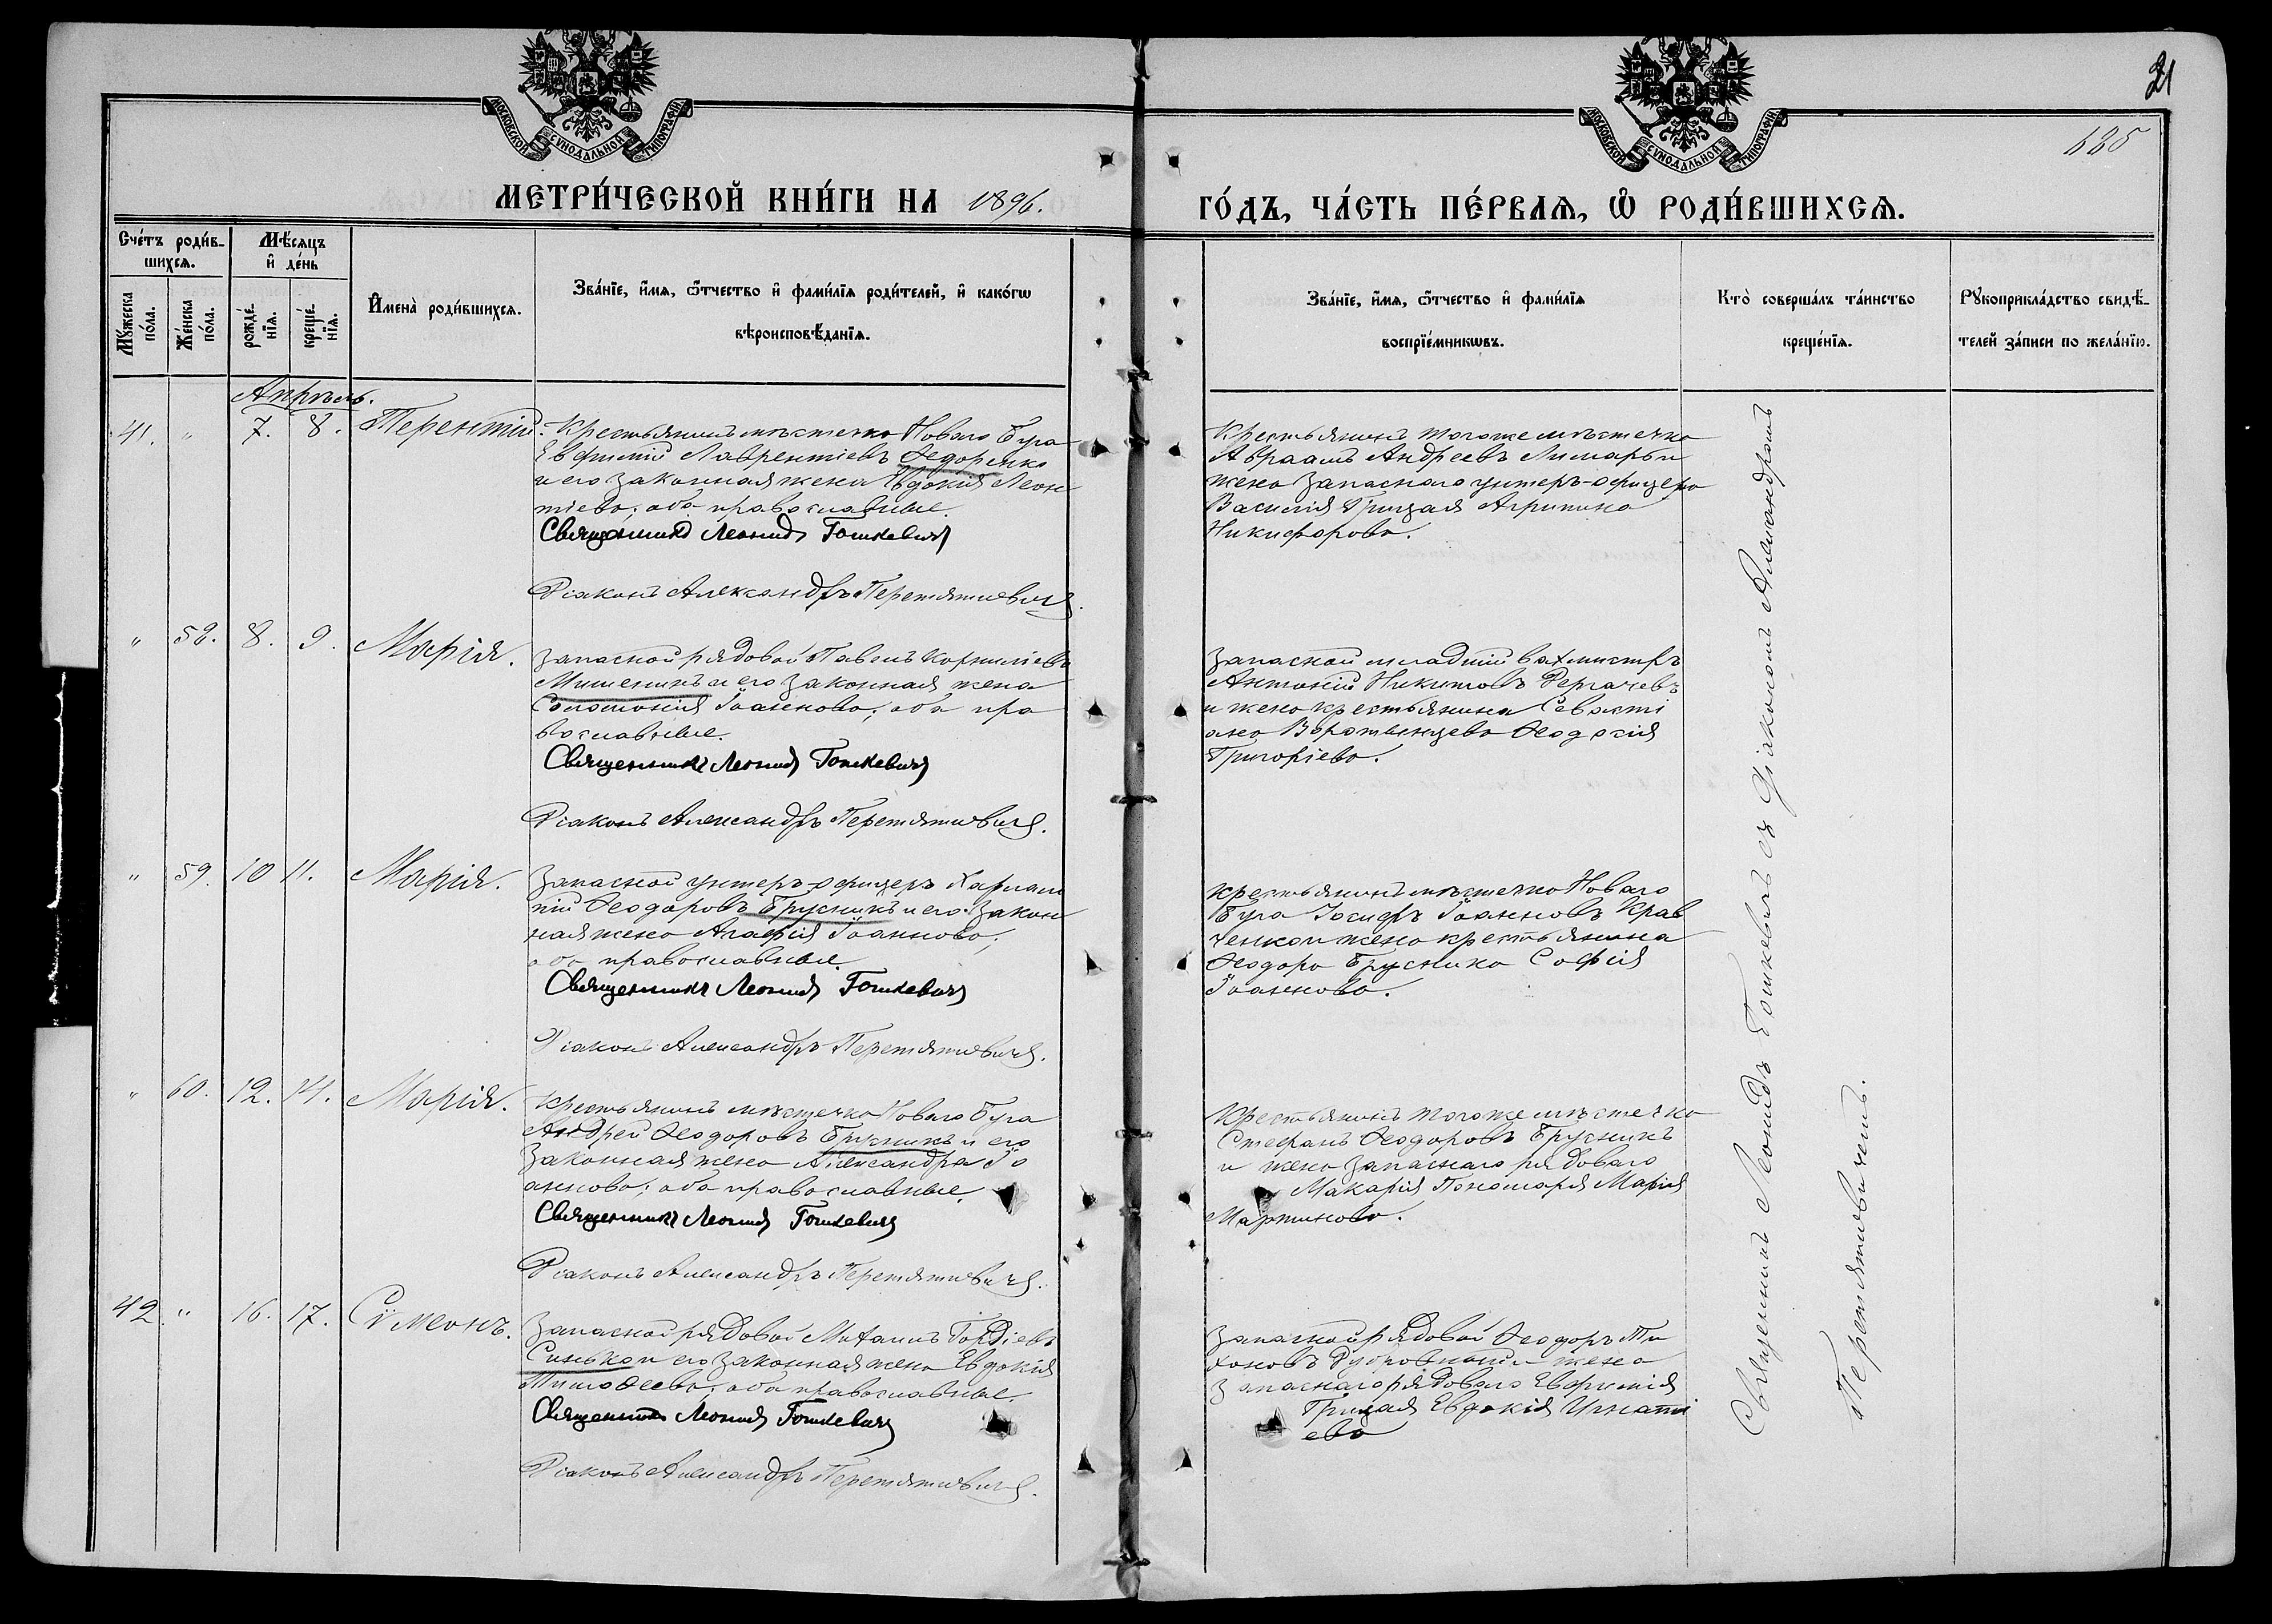 21
125
МОСКОВСКОЙ СУНОДАЛЬНОЙ ТИПОГРАФІИ
МОСКОВСКОЙ СУНОДАЛЬНОЙ ТИПОГРАФІИ
МЕТРИ́ЧЕСКОЙ КНИ́ГИ НА 1896.
ГО́ДЪ, ЧА́СТЬ ПЕ́РВАЯ, Ѡ РОДИ́ВШИХСЯ.
Сче́тъ роди́в-
шихся.
Мѣ́сяцъ
и҆ де́нь
Мꙋ́жеска
по́ла.
Же́нска
по́ла.
рожде́-
нїя.
креще́-
нїя.
И҆мена̀ роди́вшихся.
Зва́нїе, и҆́мя, ѻ҆́тчество и҆ фами́лїя роди́телей, и҆ како́гѡ
вѣроисповѣ́данїя.
Зва́нїе, и҆́мя, ѻ҆́тчество и҆ фами́лїя
воспрїе́мникѡвъ.
Кто̀ соверша́лъ та́инство
креще́нїя.
Рꙋкоприкла́дство свидѣ́-
телей за́писи по жела́нїю.
Апрѣль.
41. " 7. 8. Терентій.
Крестьянинъ мѣстечка Новаго Буга
Евфимій Лаврентіевъ Ѳедоренко
и его законная жена Евдокія Леон
тіева; оба православные.
Священникъ Леонид Гошкевичъ
Діаконъ Александръ Перетятковичъ.
Крестьянинъ тогоже мѣстечка
Авраамъ Андреевъ Лимарь и
жена запаснаго унтеръ-офицера
Василія Грицая Агрипина
Никифорова.
" 58. 8. 9. Марія.
Запасной рядовой Павелъ Корниліевъ
Мишенинъ и его законная жена
Соломонія Іоаннова; оба пра
вославные.
Священникъ Леонид Гошкевичъ
Діаконъ Александръ Перетятковичъ.
Запасной младшій вахмистръ
Антоній Никитовъ Дергачевъ
и жена крестьянина Севасті
ана Воротынцева Ѳеодосія
Григоріева.
" 59. 10 11. Марія.
Запасной унтеръ-офицеръ Харлам
пій Ѳеодоровъ Брусникъ и его закон
ная жена Агафія Іоаннова;
оба православные.
Священникъ Леонид Гошкевичъ
Діаконъ Александръ Перетятковичъ.
Крестьянинъ мѣстечка Новаго
Буга Іосифъ Іоанновъ Крав
ченко и жена крестьянина
Ѳеодора Брусника Софія
Іоаннова.
" 60. 12. 14. Марія.
Крестьянинъ мѣстечка Новаго Буга
Андрей Ѳеодоровъ Брусникъ и его
законная жена Александра Іо
аннова; оба православные.
Священникъ Леонид Гошкевичъ
Діаконъ Александръ Перетятковичъ.
Крестьянинъ тогоже мѣстечка
Стефанъ Ѳеодоровъ Брусникъ
и жена запаснаго рядоваго
Макарія Пономаря Марія
Мартинова.
42. " 16. 17. Сѵмеонъ.
Запасной рядовой Михаилъ Гордіевъ
Синько и его законная жена Евдокія
Тимоѳеева; оба православные.
Священникъ Леонид Гошкевичъ
Діаконъ Александръ Перетятковичъ.
Запасной рядовой Ѳеодоръ Ти
хоновъ Дубровный и жена
запаснаго рядоваго Евфимія
Грицая Евдокія Игнаті
ева
Священникъ Леонидъ Гошкевичъ съ Діакономъ Александромъ
Перетятковичемъ.